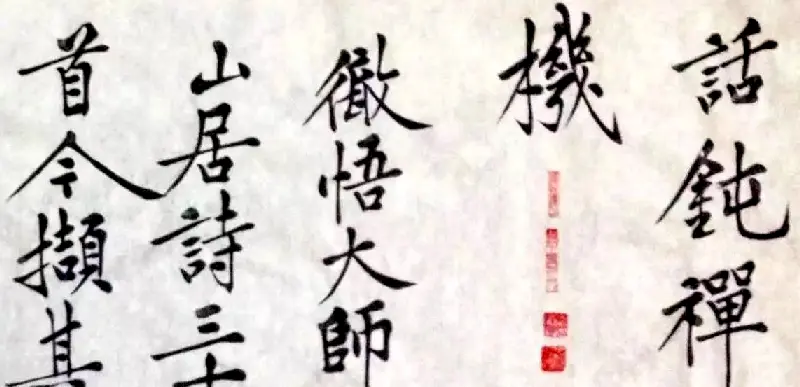 話鈍禪
機
徹悟大師
山居詩三十
首今擷其